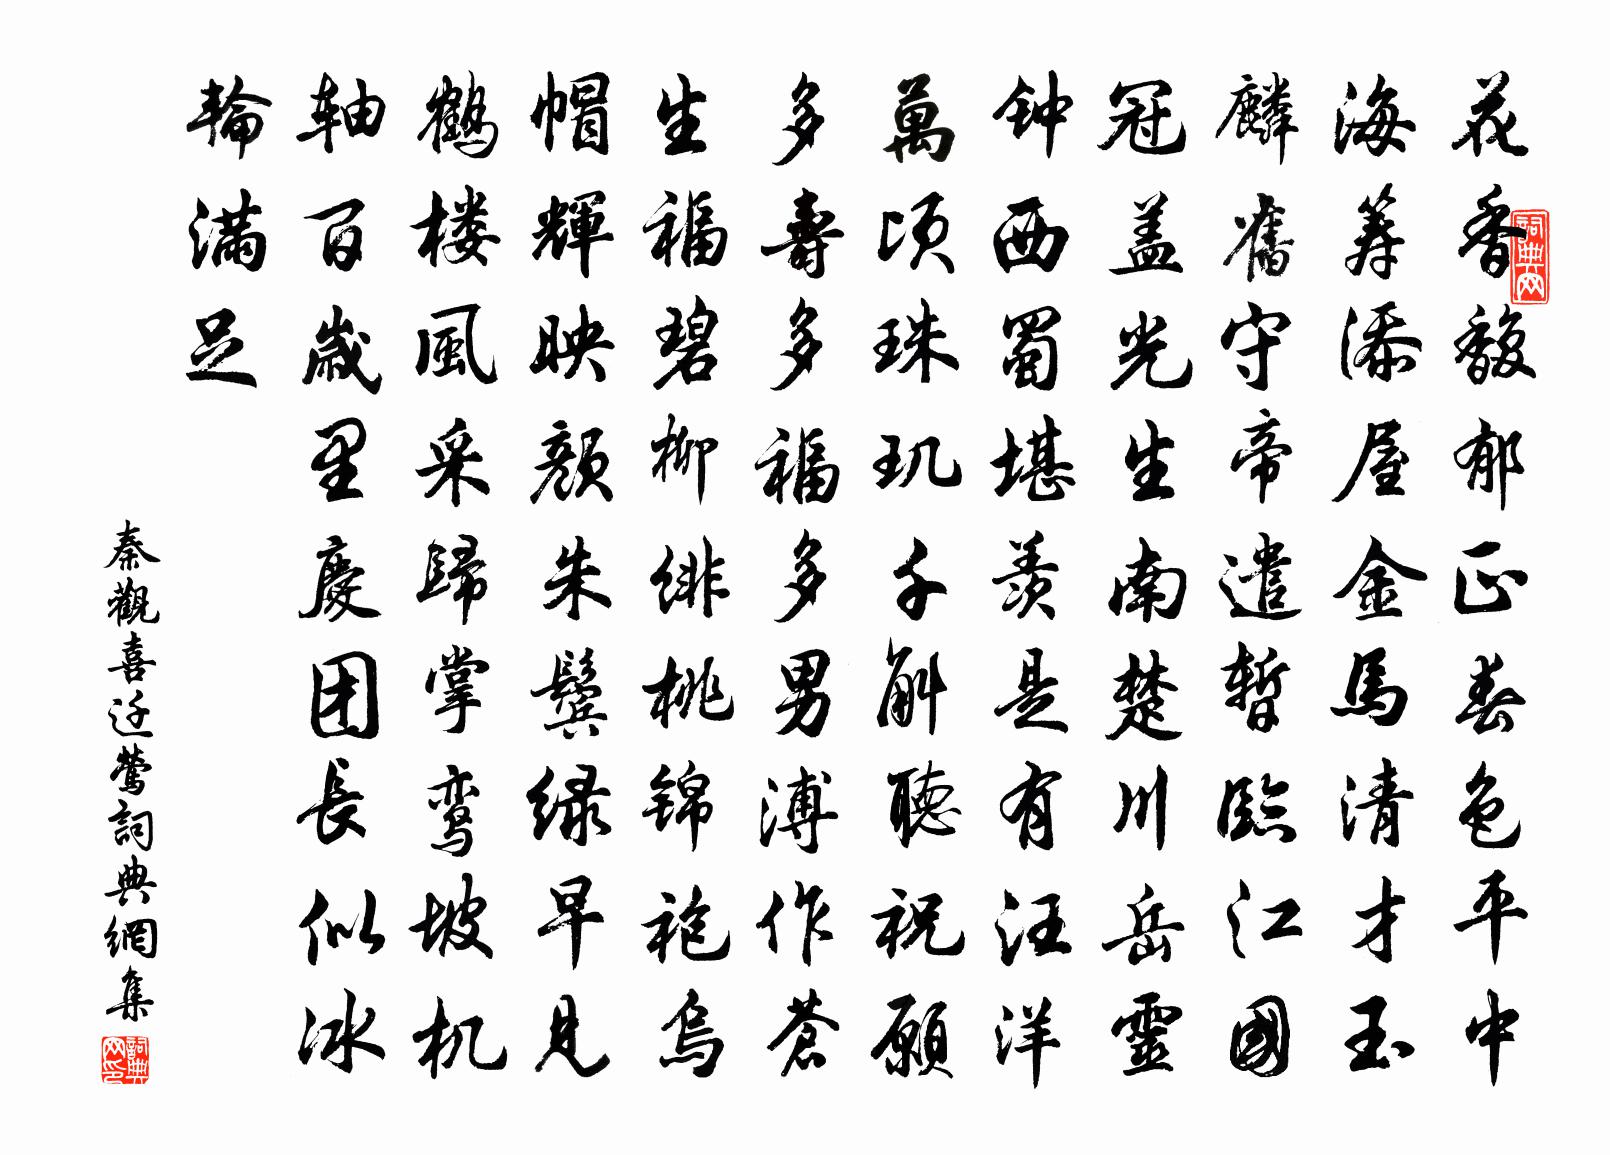 花香馥郁正春色平中
海筹添屋金馬清才玉
麟舊守帝遣暫臨江國
冠盖光生南楚川岳靈
钟西蜀堪羨是有汪洋
萬顷珠玑千斛聽祝願
多壽多福多男溥作蒼
生福碧柳绯桃锦袍烏
帽輝映顔朱鬓绿早見
鶴楼風采歸掌鸾坡机
軸百歲里慶团長似冰
輪滿足
秦觀喜迁鶯詞典網集
詞典网
詞典网印